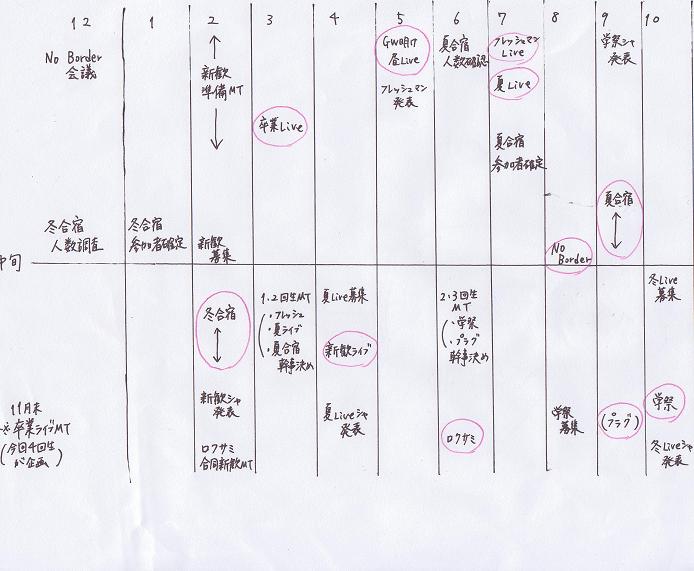 12 1 2 3 4 5 6 7 8 9 10
No Border
会議
新歓
準備MT
卒業Live
GW明け
昼Live
フレッシュマン
発表
夏合宿
人数確認
フレッシュマン
Live
夏Live
夏合宿
参加者確定
学祭シャ
発表
夏合宿
冬合宿
人数調査
冬合宿
参加者確定
新歓
募集
No
Border
中旬
冬合宿
1.2回生MT
・フレッシュ
・夏ライブ
・夏合宿
幹事決め
夏Live募集
新歓ライブ
2.3回生
MT
・学祭
・プラグ
幹事決め
冬Live
募集
11月末
※卒業ライブMT
(今回4回生
が企画)
新歓シャ
発表
ロクサミ
合同新歓MT
夏Liveシャ
発表
ロクサミ
学祭
募集
(プラグ)
学祭
冬Liveシャ
発表